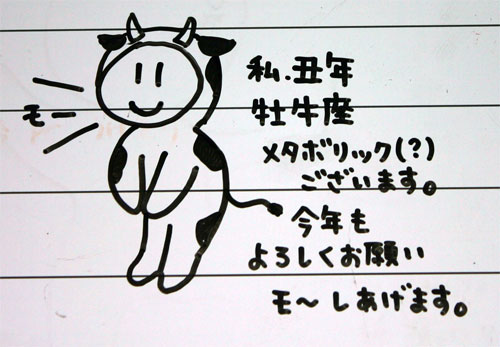 モー
私、丑年
牡牛座
メタボリック(?)
ございます。
今年も
よろしくお願い
モ～しあげます。